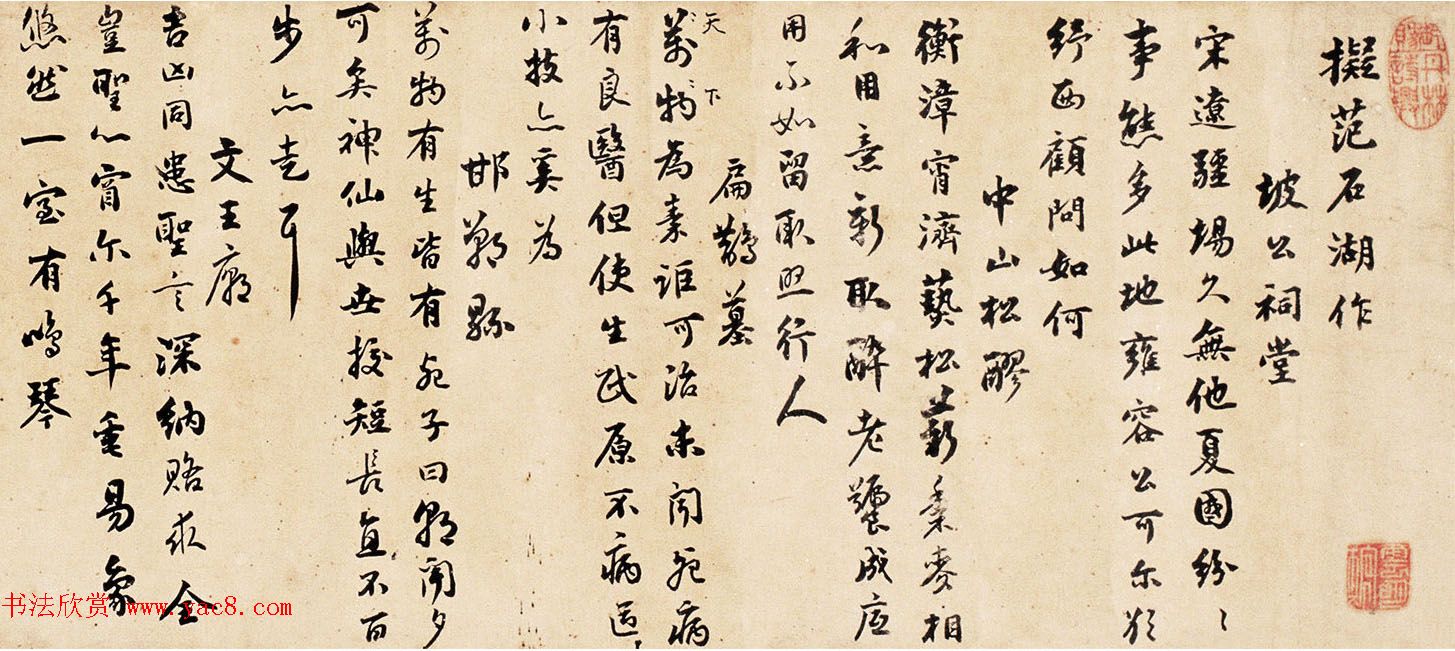 擬范石湖作
坡公祠堂
宋遼疆場久無他夏國紛〻
事態多此地雍容公可尔猶
紆西顧問如何
中山松醪
衡漳宵濟藝松薪黍麥相
和用意新取醉老饕成底
用不如留取照行人
扁鵲墓
天下
萬物為詎可治未聞死病
有良醫但使生民原不病區〻
小技亦奚為
邯鄲縣
萬物有生皆有死子曰朝聞夕
可矣神仙與世挍短長直不百
步亦走耳
文王廟
吉凶同患聖言深納賂求全
豈聖心窅尔千年垂易象
悠然一室有鳴琴
书法欣赏 www.yac8.com